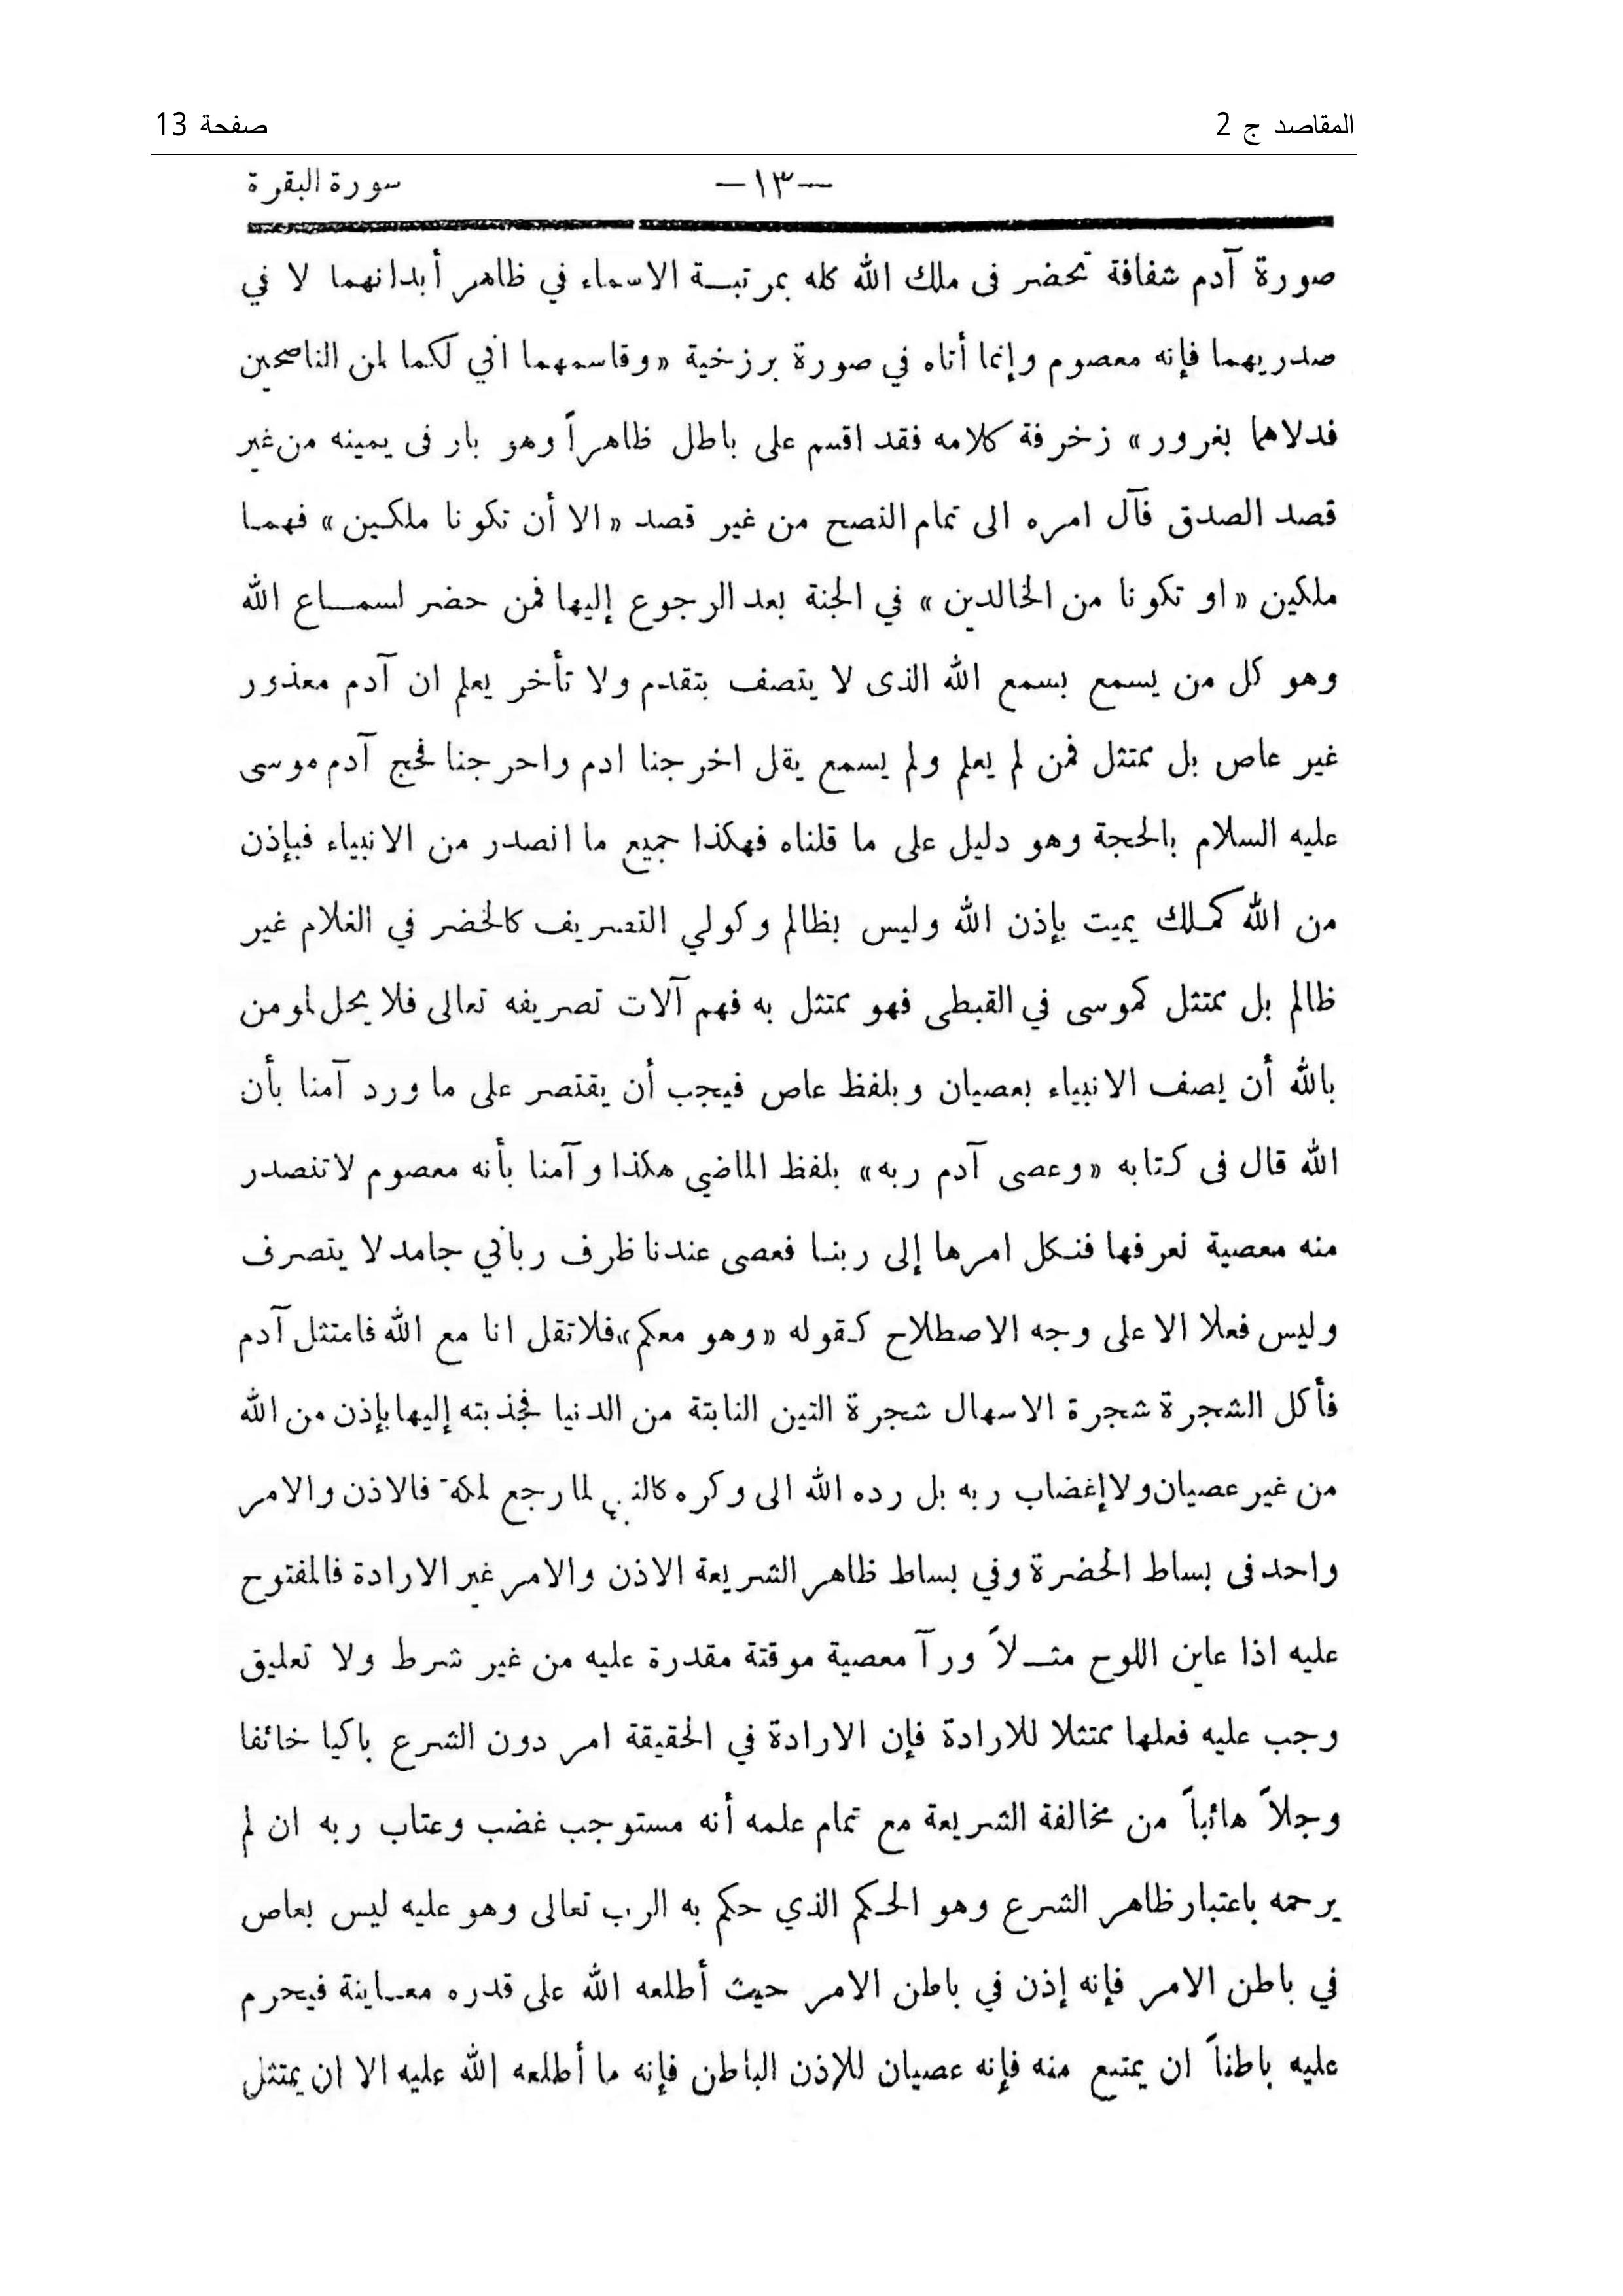 المقاصد ج 2 صفحة 13
سورة البقرة —١٣—
صورة آدم شفافة تحضر فى ملك الله كله بمرتبـة الاسماء في ظاهر أبدانهما لا في
صدريهما فإنه معصوم وإنما أتاه في صورة برزخية «وقاسمهما اني لكما لمن الناصحين
فدلاهما بغرور» زخرفة كلامه فقد اقسم على باطل ظاهراً وهو بار فى يمينه من غير
قصد الصدق فآل امره الى تمام النصح من غير قصد «الا أن تكونا ملكين» فهما
ملكين «او تكونا من الخالدين» في الجنة بعد الرجوع إليها فمن حضر لسمـاع الله
وهو كل من يسمع بسمع الله الذى لا يتصف بتقدم ولا تأخر يعلم ان آدم معذور
غير عاص بل ممتثل فمن لم يعلم ولم يسمع يقل اخرجنا ادم واحرجنا فحج آدم موسى
عليه السلام بالحجة وهو دليل على ما قلناه فهكذا جميع ما انصدر من الانبياء فبإذن
من الله كملك يميت بإذن الله وليس بظالم وكولي التصريف كالخضر في الغلام غير
ظالم بل ممتثل كموسى في القبطى فهو ممتثل به فهم آلات تصريفه تعالى فلا يحل لمومن
بالله أن يصف الانبياء بعصيان وبلفظ عاص فيجب أن يقتصر على ما ورد آمنا بأن
الله قال فى كتابه «وعصى آدم ربه» بلفظ الماضي هكذا وآمنا بأنه معصوم لا تنصدر
منه معصية نعرفها فنكل امرها إلى ربنا فعصى عندنا ظرف رباني جامد لا يتصرف
وليس فعلا الا على وجه الاصطلاح كقوله «وهو معكم» فلا تقل انا مع الله فامتثل آدم
فأكل الشجرة شجرة الاسهال شجرة التين النابتة من الدنيا فجذبته إليها بإذن من الله
من غير عصيان ولا إغضاب ربه بل رده الله الى وكره كالنبي لما رجع لمكة فالاذن والامر
واحد فى بساط الحضرة وفي بساط ظاهر الشريعة الاذن والامر غير الارادة فالمفتوح
عليه اذا عاين اللوح مثـلاً ورآ معصية موقتة مقدرة عليه من غير شرط ولا تعليق
وجب عليه فعلها ممتثلا للارادة فإن الارادة في الحقيقة امر دون الشرع باكيا خائفا
وجلاً هائباً من مخالفة الشريعة مع تمام علمه أنه مستوجب غضب وعتاب ربه ان لم
يرحمه باعتبار ظاهر الشرع وهو الحكم الذي حكم به الرب تعالى وهو عليه ليس بعاص
في باطن الامر فإنه إذن في باطن الامر حيث أطلعه الله على قدره معـاينة فيحرم
عليه باطناً ان يمتنع منه فإنه عصيان للإذن الباطن فإنه ما أطلعه الله عليه الا ان يمتثل